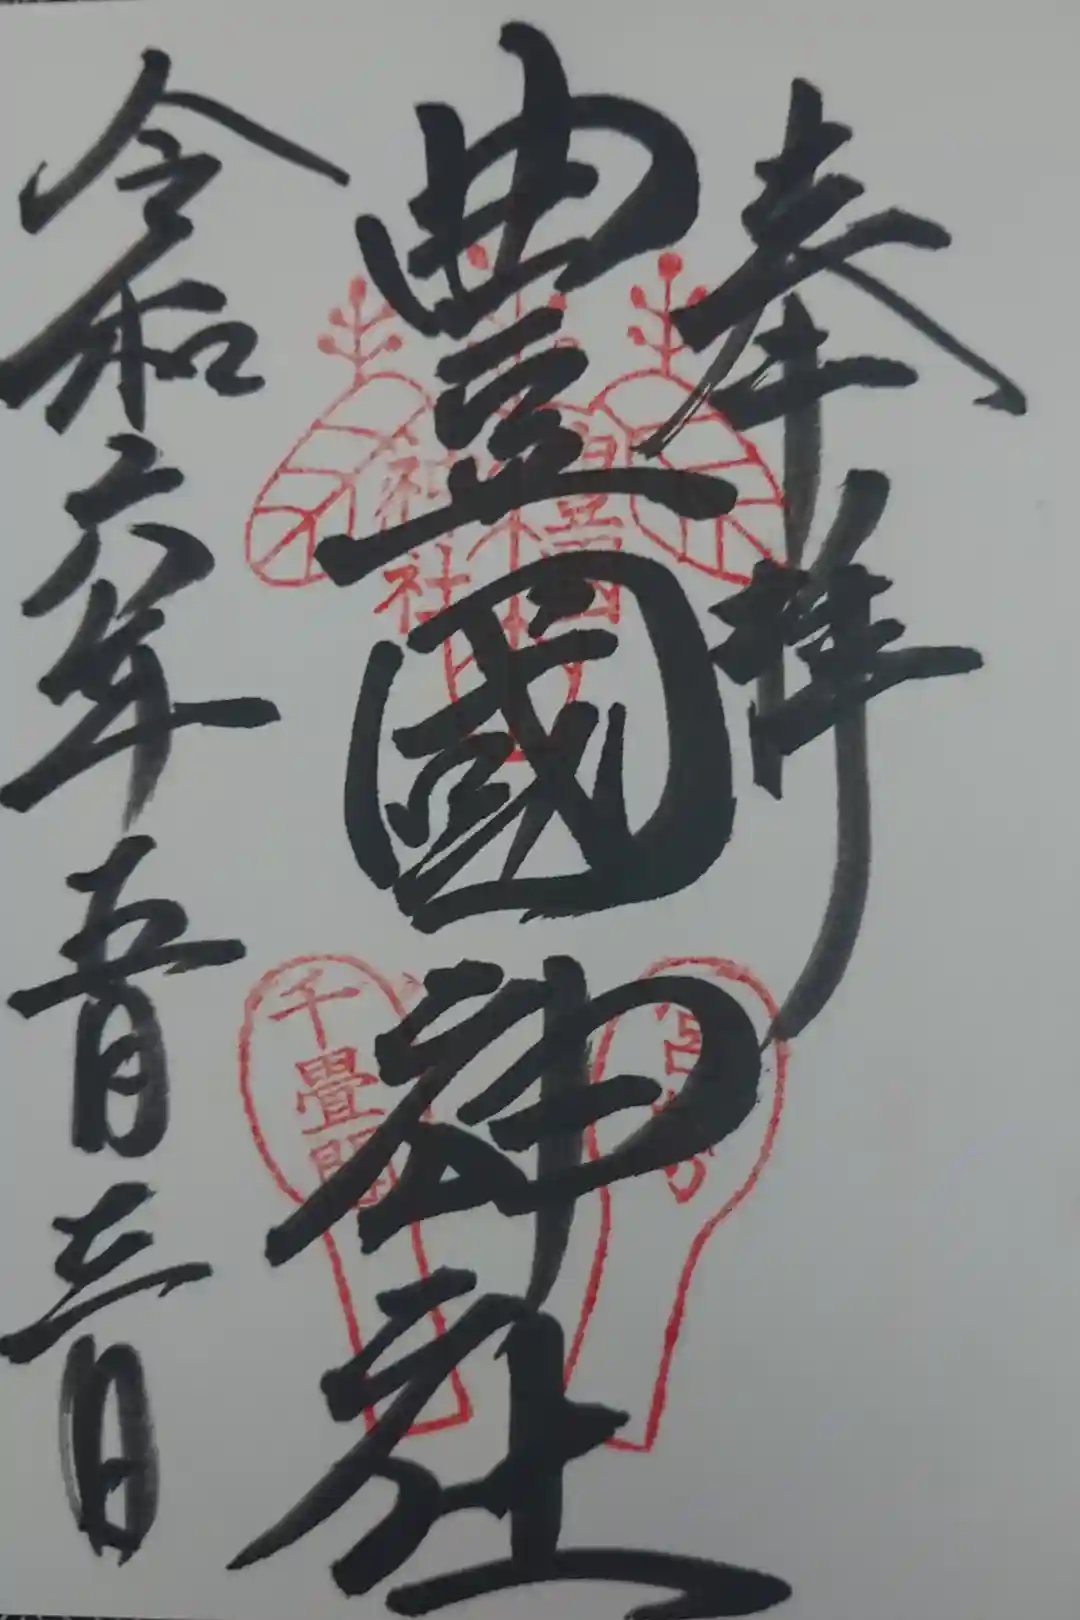 奉拝
豊國神社
令和六年五月三日
神社
千畳閣